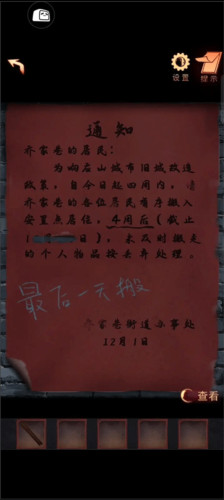 设置
提示
通知
齐家巷的居民：
为响应山城市旧城改造
政策，自今日起四周内，请
齐家巷的各位居民有序搬入
安置点居住，4周后（截止
日），未及时搬走
的个人物品按丢弃处理。
最后一天搬
齐家巷街道办事处
12月1日
查看